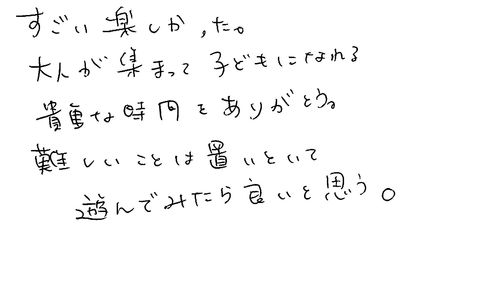 すごい楽しかった。
大人が集まって子どもになれる
貴重な時間をありがとう。
難しいことは置いといて
遊んでみたら良いと思う。